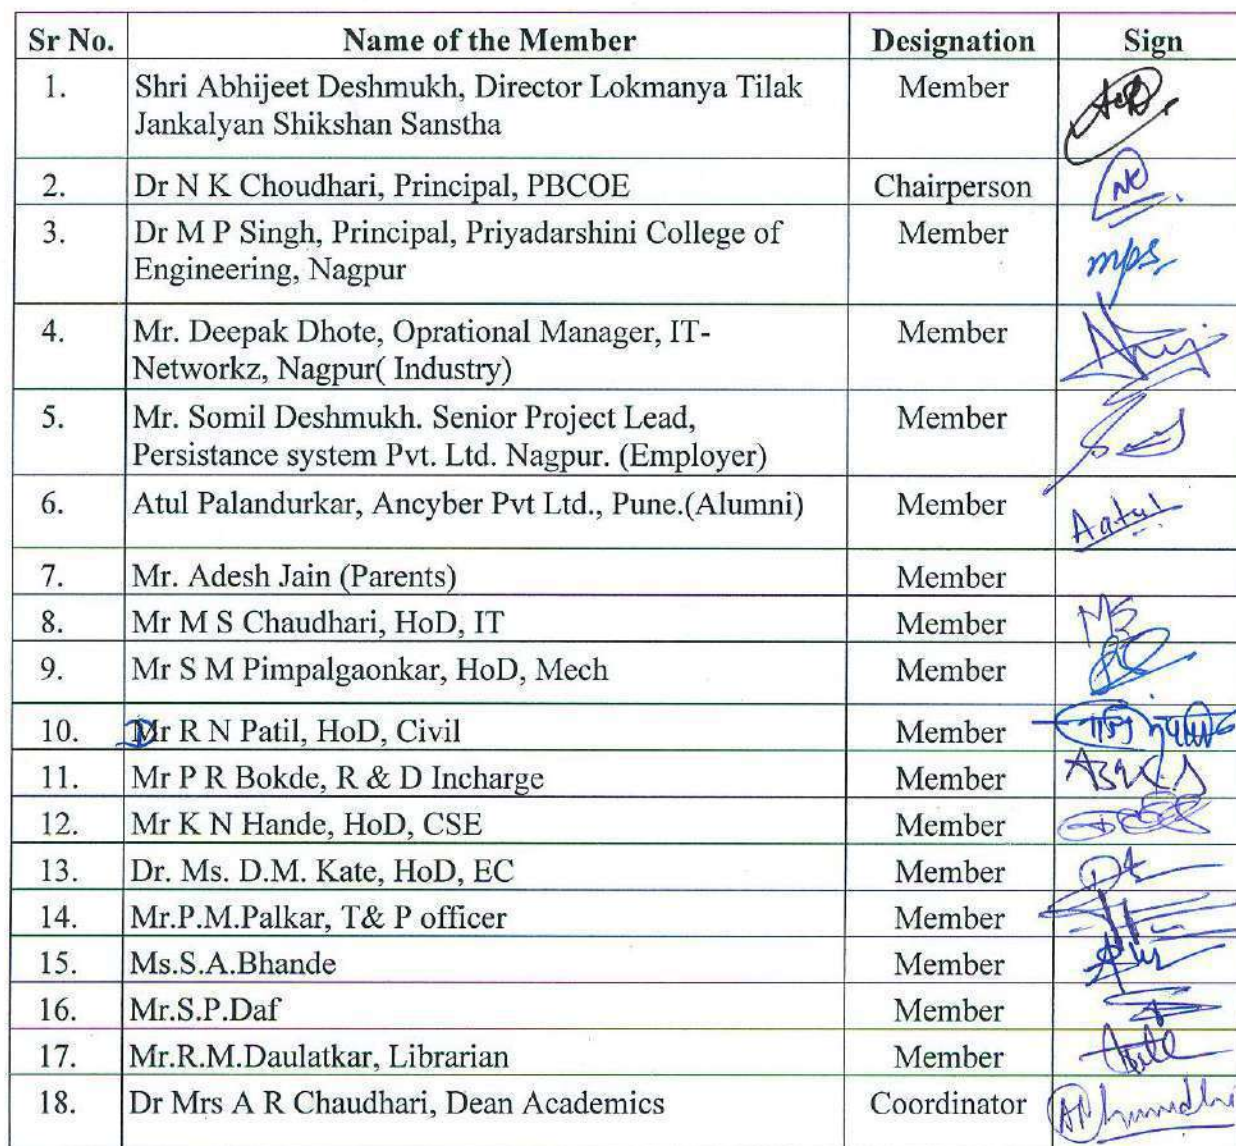 Sr No. Name of the Member Designation Sign
1. Shri Abhijeet Deshmukh, Director Lokmanya Tilak Member
Jankalyan Shikshan Sanstha
2. Dr N K Choudhari, Principal, PBCOE Chairperson NK
3. Dr M P Singh, Principal, Priyadarshini College of Member
Engineering, Nagpur mps
4. Mr. Deepak Dhote, Oprational Manager, IT- Member
Networkz, Nagpur( Industry)
5. Mr. Somil Deshmukh. Senior Project Lead, Member
Persistance system Pvt. Ltd. Nagpur. (Employer)
6. Atul Palandurkar, Ancyber Pvt Ltd., Pune.(Alumni) Member Aatul
7. Mr. Adesh Jain (Parents) Member
8. Mr M S Chaudhari, HoD, IT Member
9. Mr S M Pimpalgaonkar, HoD, Mech Member
10. Mr R N Patil, HoD, Civil Member
11. Mr P R Bokde, R & D Incharge Member
12. Mr K N Hande, HoD, CSE Member
13. Dr. Ms. D.M. Kate, HoD, EC Member
14. Mr.P.M.Palkar, T& P officer Member
15. Ms.S.A.Bhande Member
16. Mr.S.P.Daf Member
17. Mr.R.M.Daulatkar, Librarian Member
18. Dr Mrs A R Chaudhari, Dean Academics Coordinator